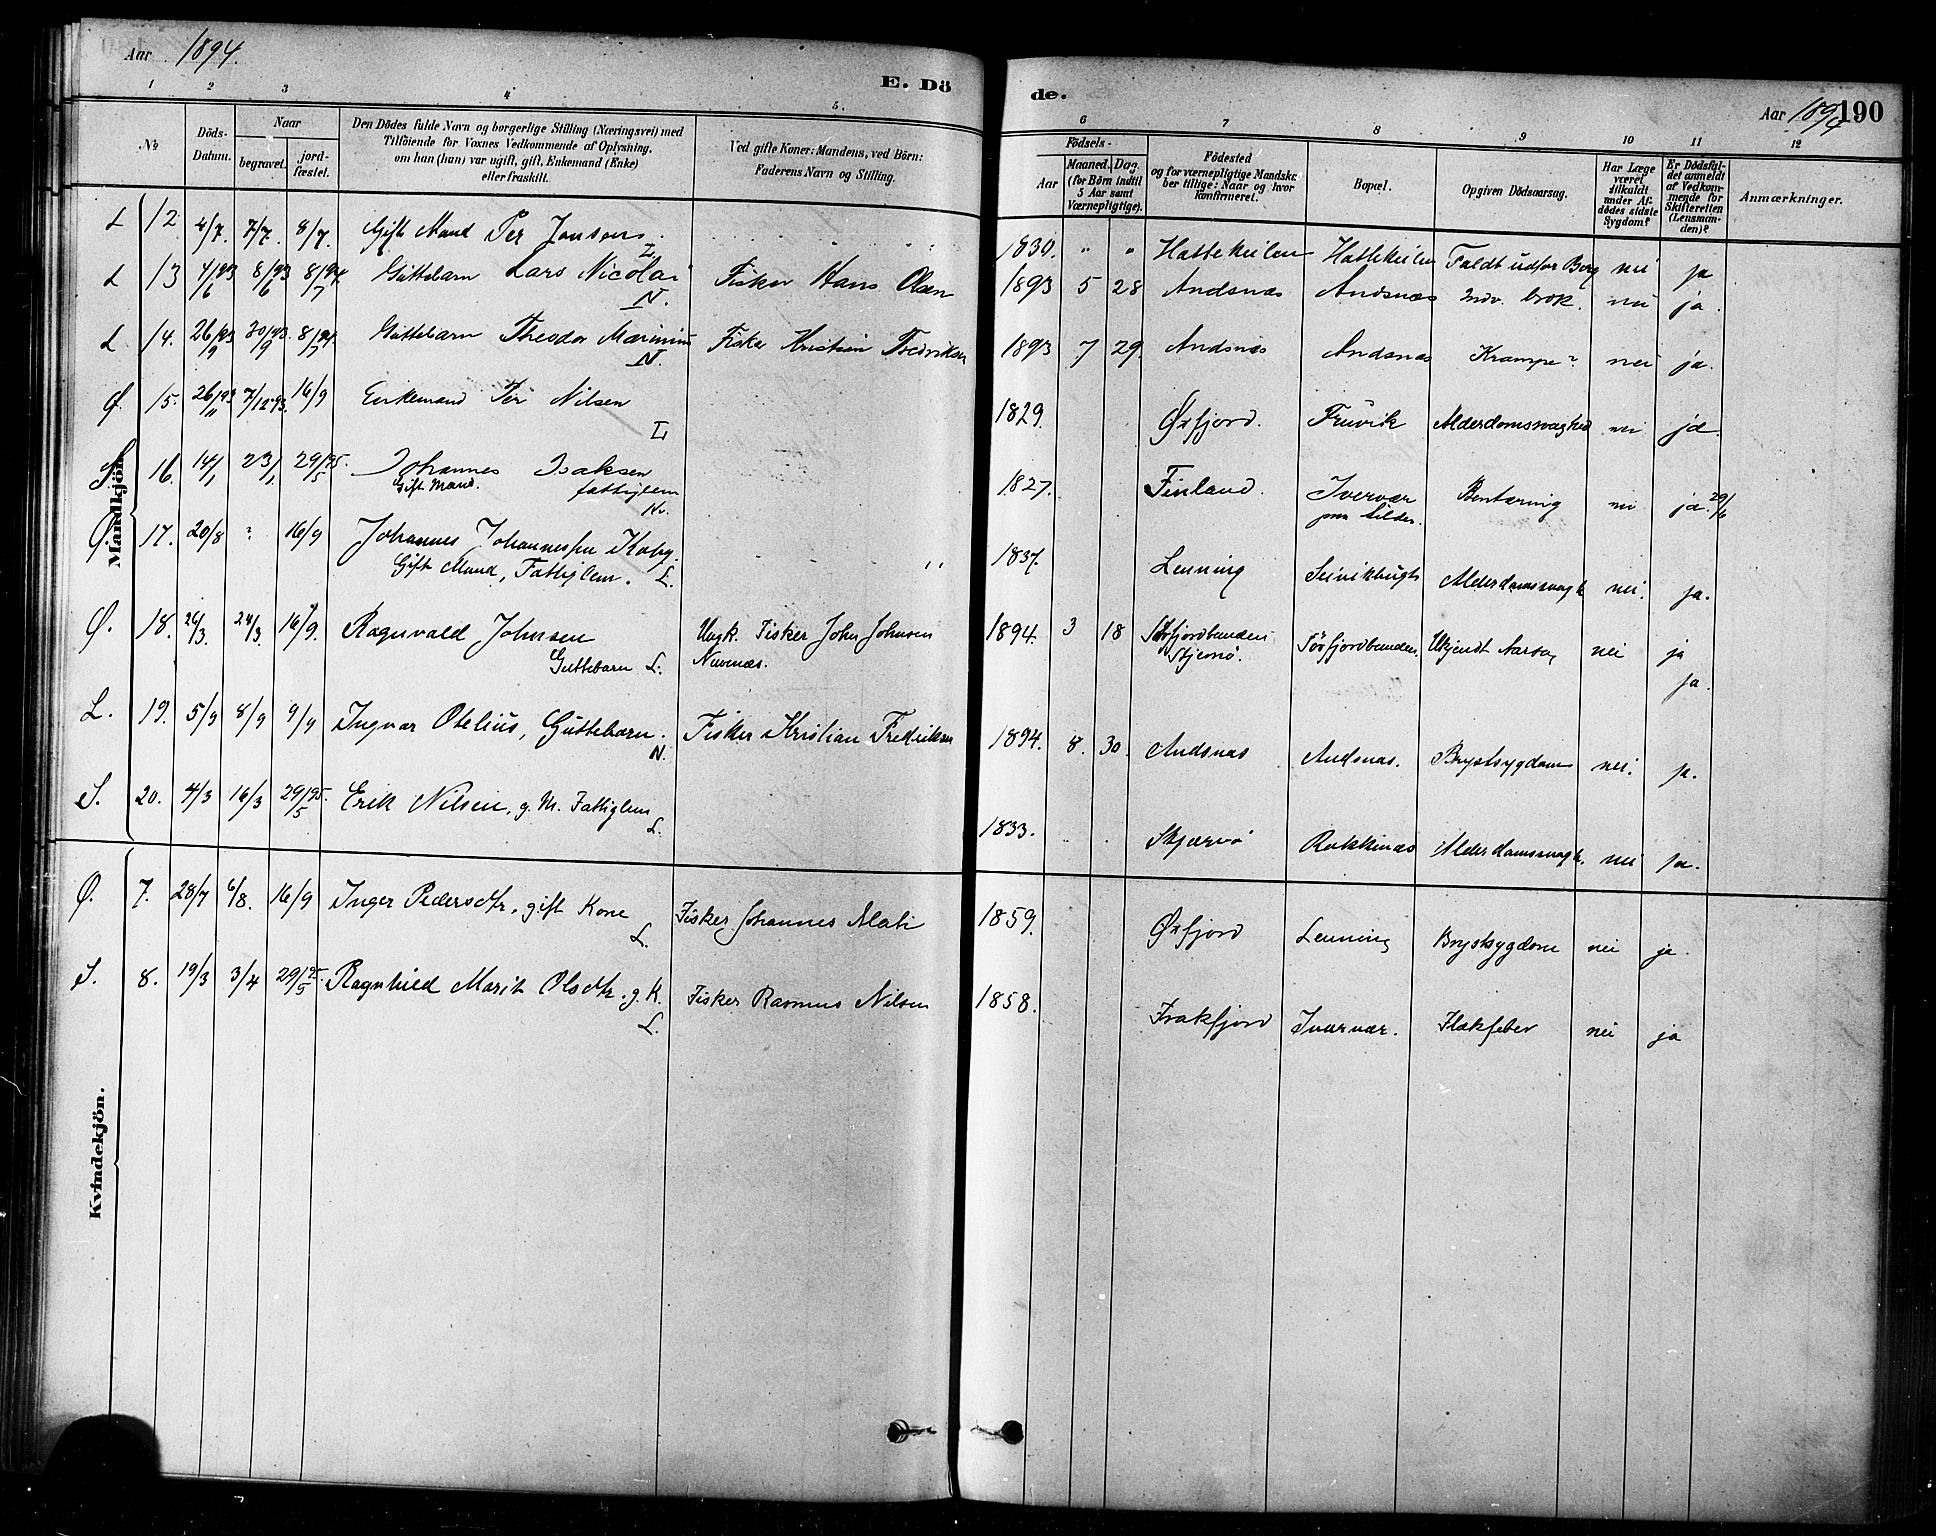 Aar 1894.
E. Dö
de.
Aar 1894 190
1 2 3 4 5.
6 7 8 9 10 11 12
No
Döds-Datum.
Naar
begravet.
jordfæstet.
Den Dödes fulde Navn og borgerlige Stilling (Næringsvei) med
Tilföiende for Voxnes Vedkommende af Oplysning,
om han (hun) var ugift, gift, Enkemand (Enke)
eller fraskilt.
Ved gifte Koner: Mandens, ved Börn:
Faderens Navn og Stilling.
Födsels-
Aar
Maaned.
Dag.
(for Börn indtil
5 Aar samt
Værnepligtige).
Födested
og for værnepligtige Mandska-
ber tillige: Naar og hvor
konfirmeret.
Bopæl.
Opgiven Dödsaarsag.
Har Læge
været
tilkaldt
under Af-
dödes sidste
Sygdom?
Er Dödsfal-
det anmeldt
af Vedkom-
mende for
Skifteretten
(Lensman-
den)?
Anmærkninger.
Mandkjön.
L 12. 4/7. 7/7. 8/7. Gift Mand Per Jonsen. L 1830. " " Hattekeilen Hattekeilen Faldt udfor Berg nei ja
L 13 4/6 93 8/6 93 8/7 94. Guttebarn Lars Nicolai N. Fisker Hans Olsen 1893 5 28 Andsnæs Andsnæs Indv. brok. nei ja.
L 14. 26/9 93 30/9 93. 8/7 94 Guttebarn Theodor Marinius N. Fisker Kristian Fredriksen 1893 7 29. Andsnæs Andsnæs Krampe? nei ja.
Ø. 15. 26/11 93 7/12 93. 16/9 Enkemand Per Nilsen L 1829. Øxfjord. Alderdomssvaghed nei ja.
S. 16. 14/1 23/1 29/5 95. Johannes Isaksen
Gift Mand. fattiglem N. 1827. Finland. Ivervær nei ja. 29/6
Ø. 17. 20/8 ? 16/9 Johannes Johannesen
Gift Mand, Fattiglem. L. " 1837. Lenning Alderdomssvagh nei. ja.
Ø. 18. 20/3. 24/3 16/9. Ragnvald Johnsen
Guttebarn L. Ungk. Fisker John Johnsen 1894. 3 18 Sörfjordbunden
Stjernö. Sörfjordbunden. Ukjendt Aarsag nei ja
ja.
L. 19. 5/9 8/9 9/9 Ingvar Otelius, Guttebarn. N. Fisker Kristian Fredriksen 1894. 8. 30. Andsnæs Andsnæs. Brystsygdom nei. ja.
S. 20. 4/3 16/3 29/5 95. Erik Nilsen, g. M. Fattiglem L. 1833. Skjærvö Alderdomssvagh. nei ja.
Kvindekjön.
Ø. 7. 28/7 6/8. 16/9 Inger Pedersdtr. gift Kone L. Fisker Johannes Mati 1859. Øxfjord Lenning Brystsygdom nei ja.
S. 8. 19/3 3/4 29/5 95. Ragnhild Marit Olsdtr. g. K. L. Fisker Rasmus Nilsen 1858. Frakfjord Ivervær. Flækfeber nei ja